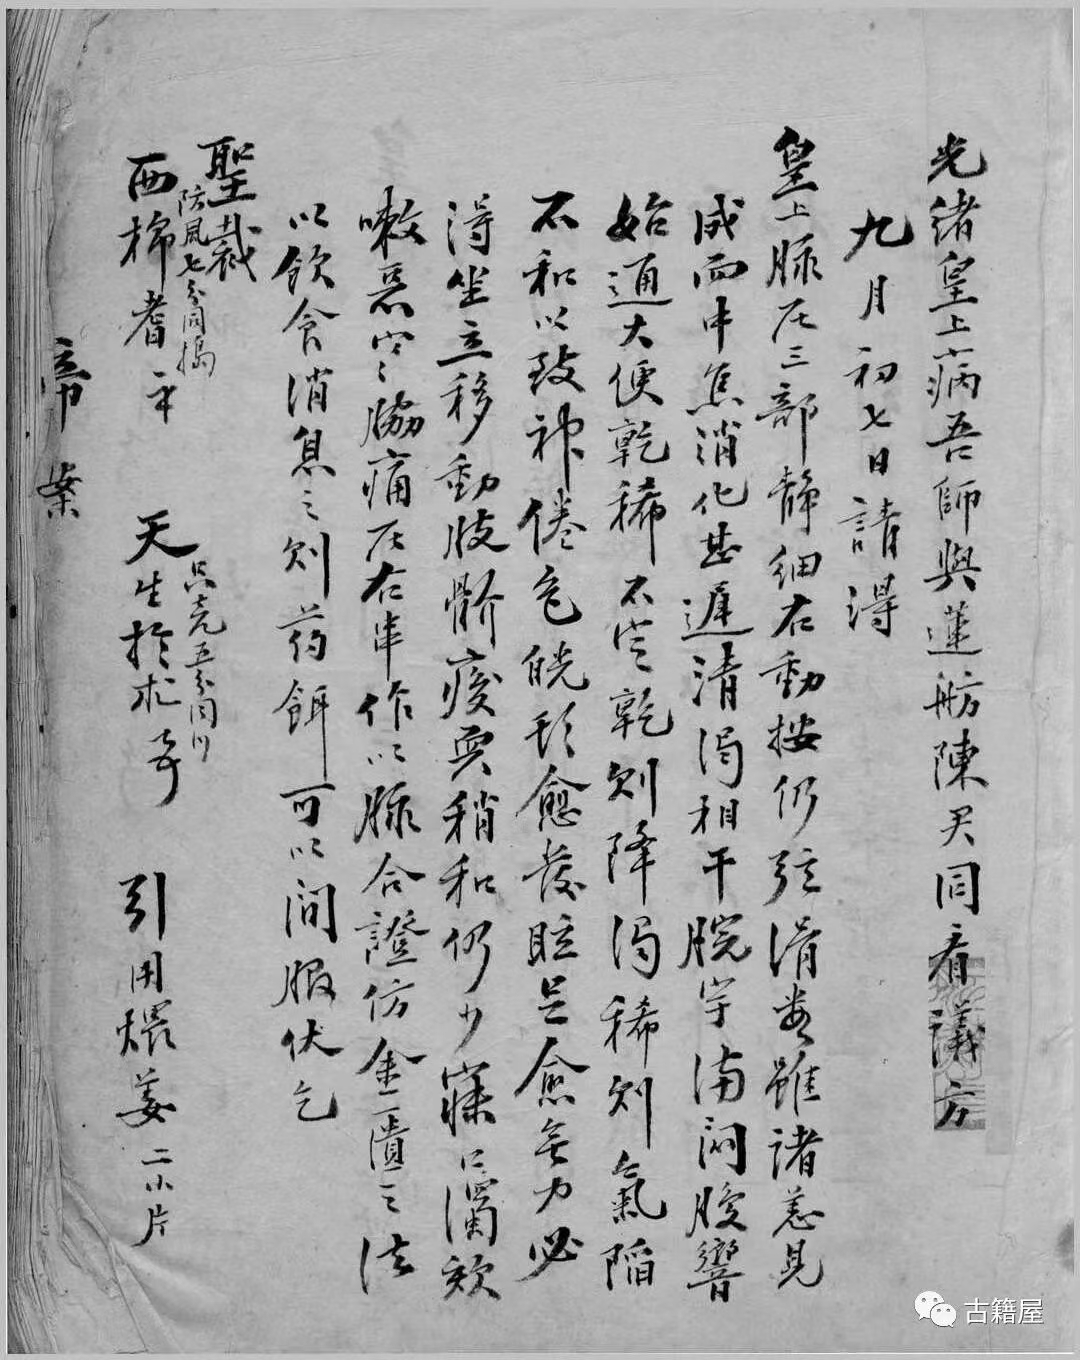 光緒皇上病吾師與蓮舫陳君同看議方
九月初七日請得
皇上脉左三部靜細右動按仍弦滑數雖諸恙見
減而中焦消化甚遲清濁相干脘宇滿悶腹響
始通大便乾稀不定乾則降濁稀則氣陷
不和以致神倦色㿠頭愈發眩足愈無力必
得坐立移動肢骱痠耎稍和仍少寐口瀾欬
嗽惡寒脇痛左右串作以脉合證仿金匱之法
以飲食消息之則药餌可以间服伏乞
聖裁
西棉耆 防風七分同搗 天生於朮 只壳五分同 引用煨姜二小片
帝案
古籍屋